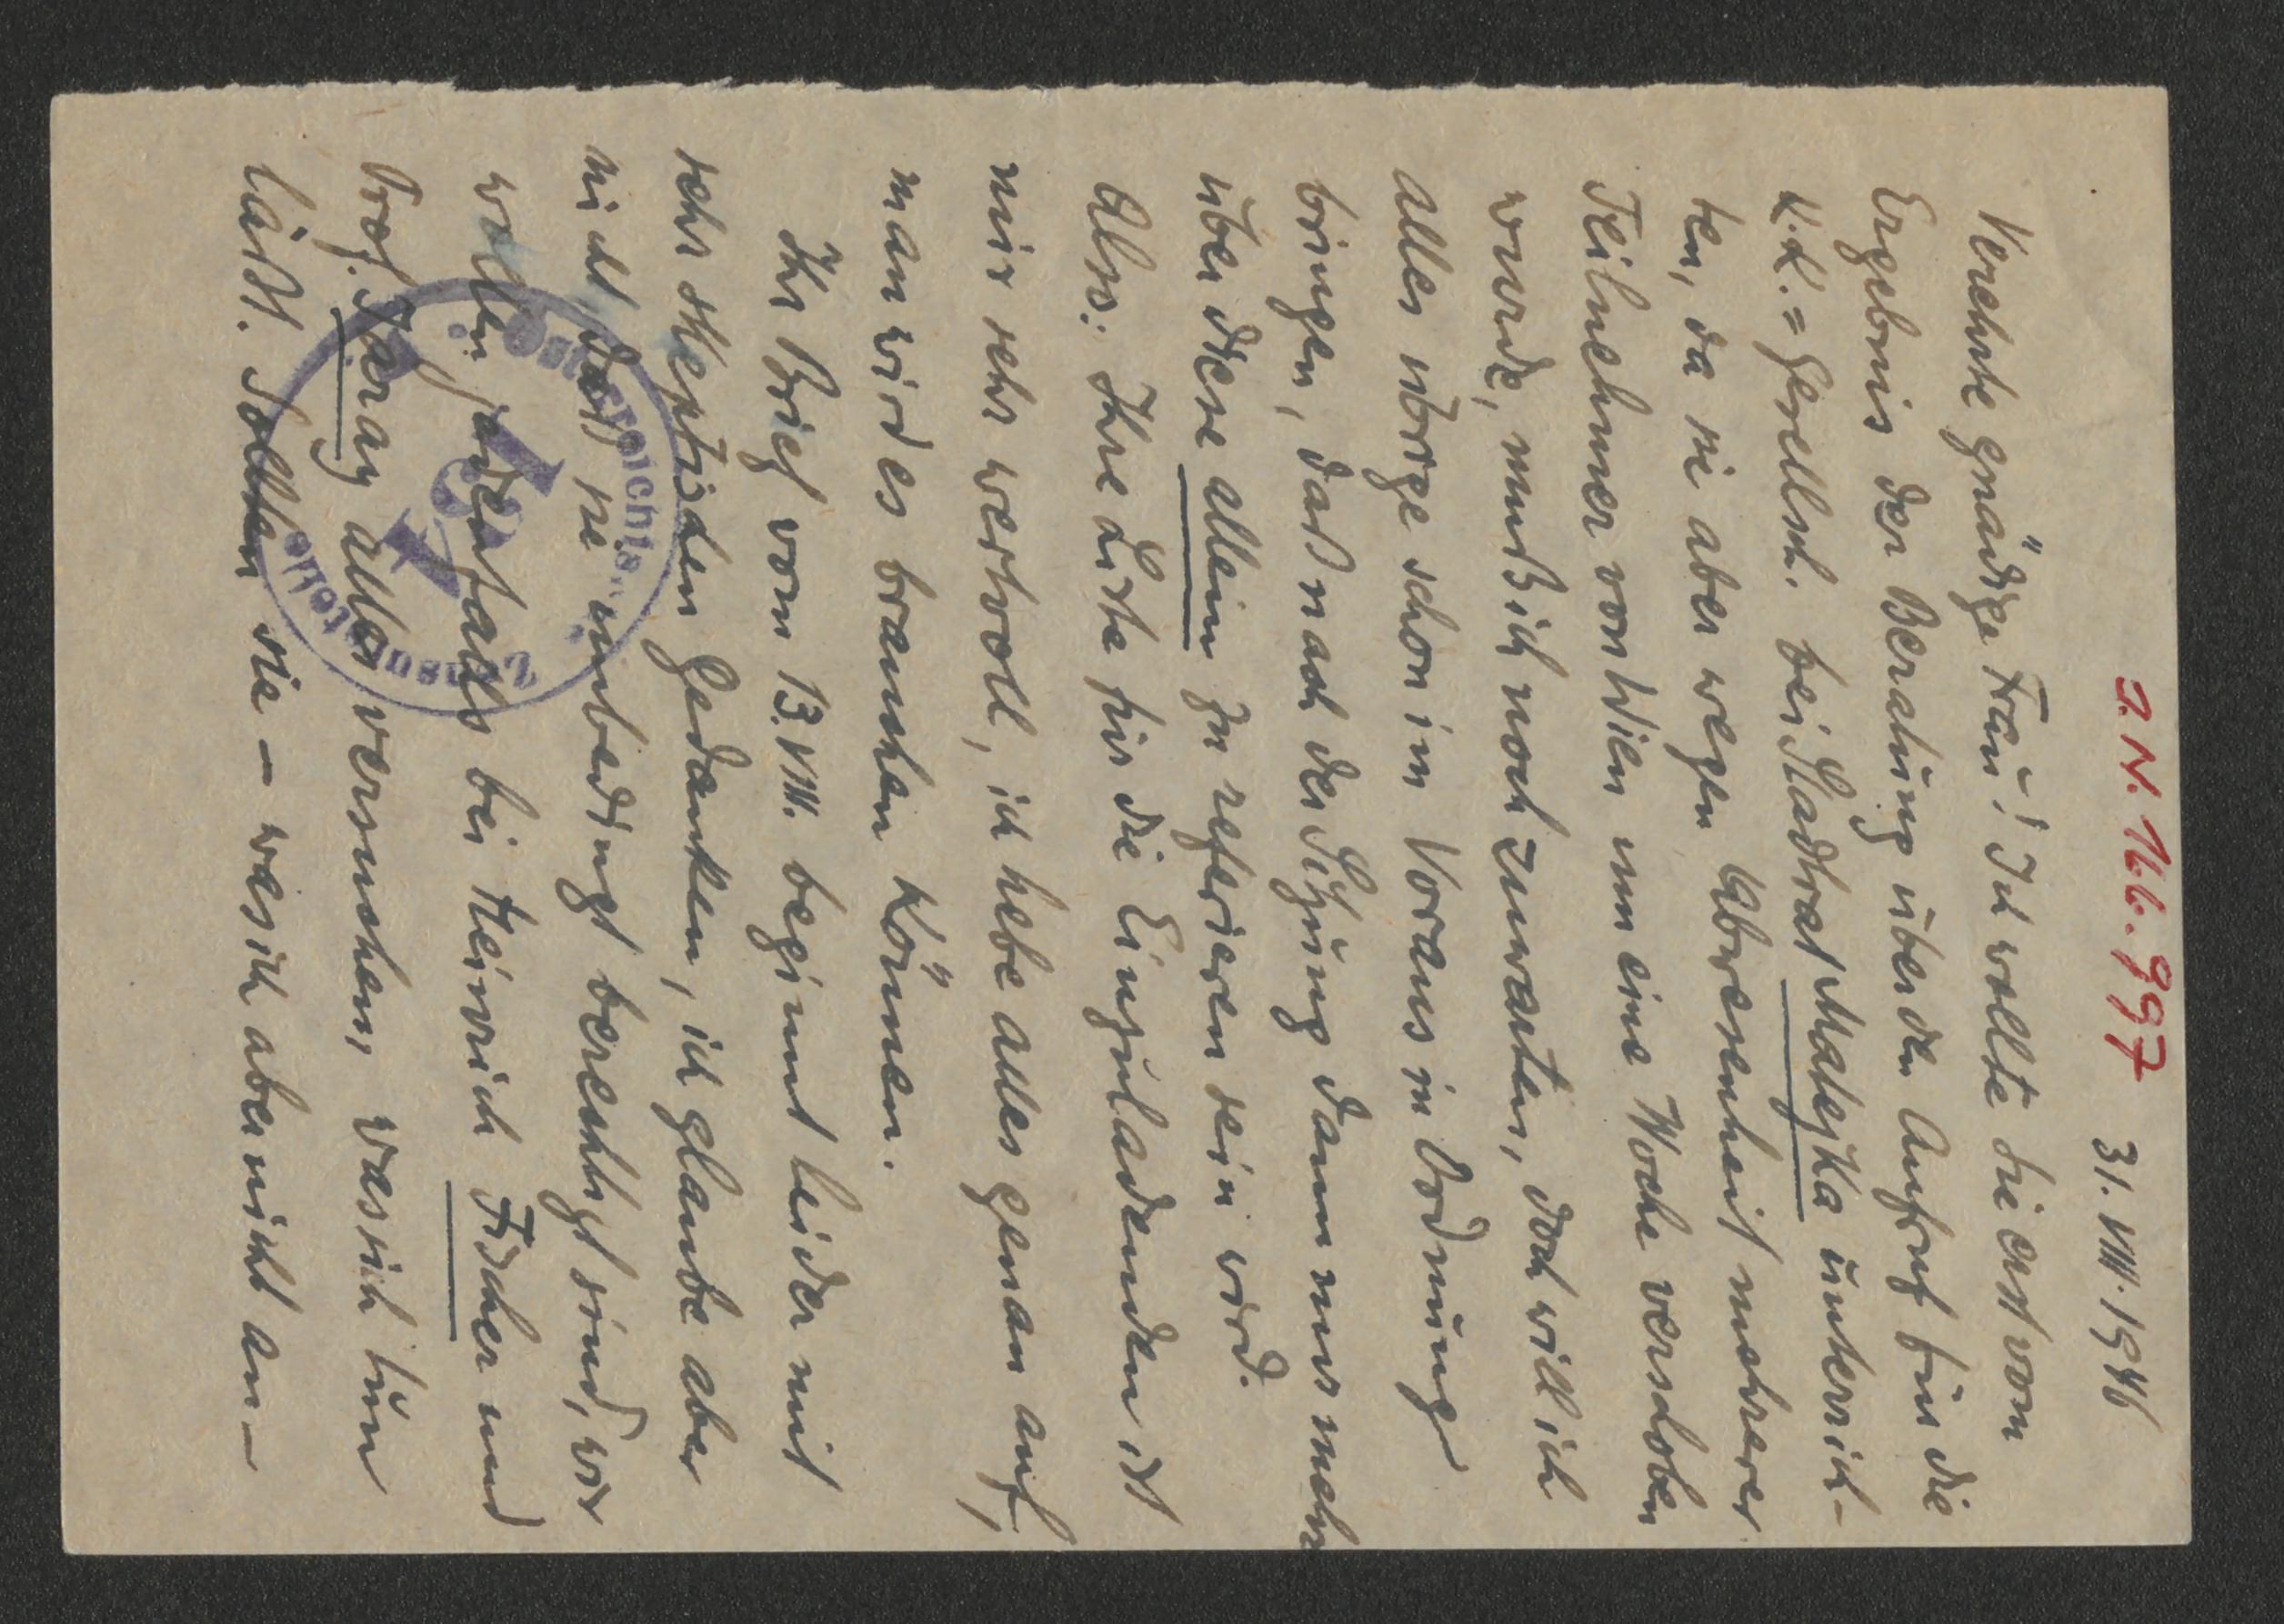 J. N. 166.997
31. VIII. 1946
Verehrte gnädige Frau! Ich wollte Sie erst vom
Ergebnis der Beratung über den Aufruf für die
K.K.=Gesellsch. bei Stadtrat Matejka unterrich-
ten, da sie aber wegen Abwesenheit mehrerer
Teilnehmer von Wien um eine Woche verschoben
wurde, muß ich noch zuwarten, doch will ich
alles übrige schon im Voraus in Ordnung
bringen, daß nach der Sitzung dann nur mehr
über diese allein zu referieren sein wird.
Also: Ihre Liste für die Einzuladenden ist
mir sehr wertvoll, ich hebe alles genau auf,
man wird es brauchen können.
Ihr Brief vom 13. VIII. beginnt leider mit
sehr skeptischen Gedanken, ich glaube aber
nicht daß sie unbedingt berechtigt sind, wir
wollen jedenfalls bei Heinrich Fischer und
Prof. Jaray alles versuchen, was sich tun
läßt. Sollten sie – was ich aber nicht an-
Österreichis
121
Zensurstelle